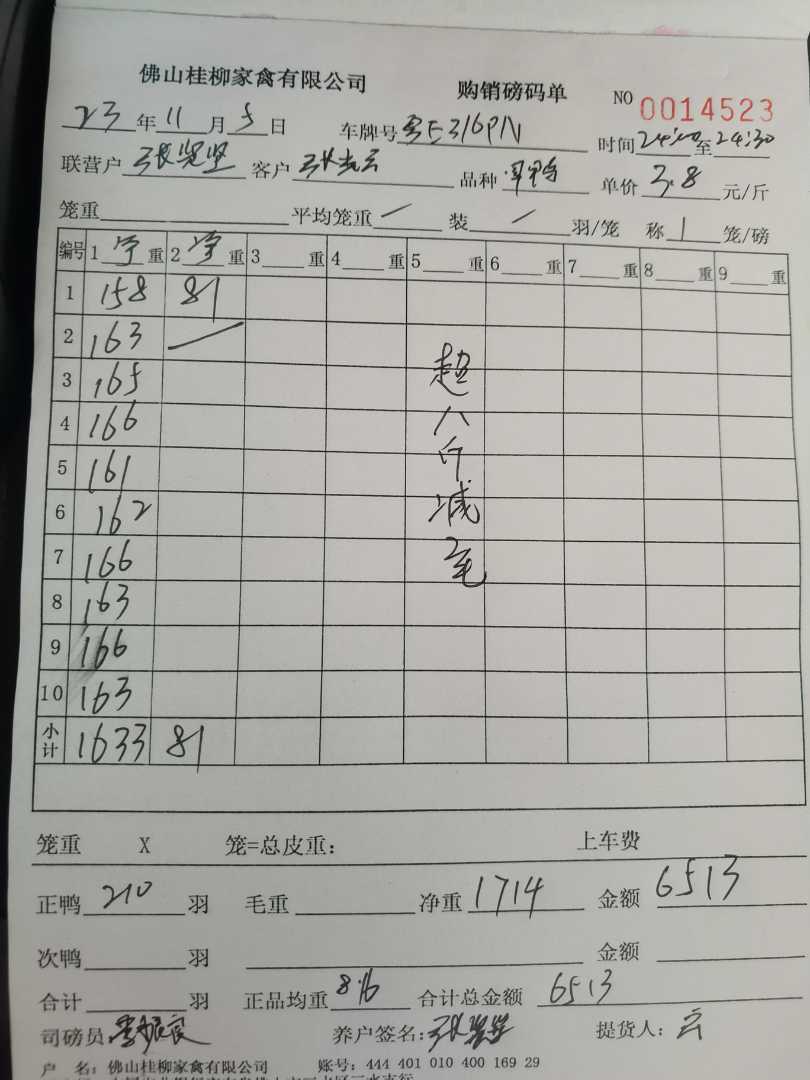 佛山桂柳家禽有限公司 购销磅码单 NO 0014523
23年11月5日 车牌号粤E316PN 时间24:00至24:30
联营户 张 坚 客户 张 云 品种 单价3.8元/斤
笼重 平均笼重 / 装 / 羽/笼 称1笼/磅
编号 1 字 重 2 字 重 3 重 4 重 5 重 6 重 7 重 8 重 9 重
1 158 81
2 163 /
3 165
4 166
5 161
6 162
7 166
8 163
9 166
10 163
超八斤减毛
小计 1633 81
笼重 X 笼=总皮重: 上车费
正鸭 210 羽 毛重 净重 1714 金额 6513
次鸭 羽 金额
合计 羽 正品均重 8.16 合计总金额 6513
司磅员: 养户签名:张 坚 提货人:云
户 名:佛山桂柳家禽有限公司 账号:444 401 010 400 169 29